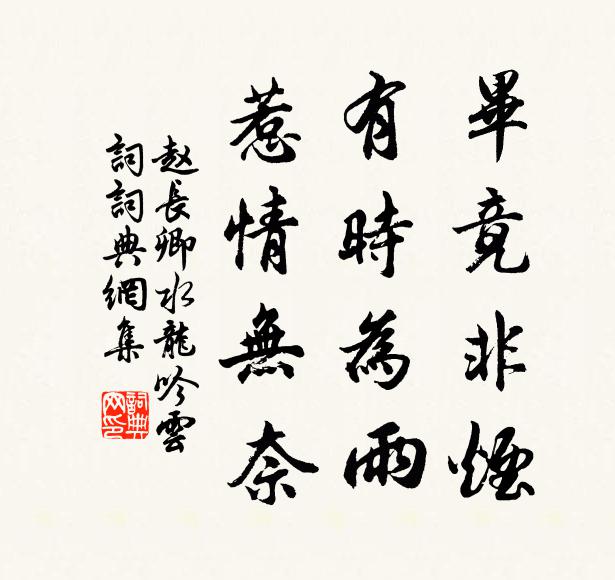 畢竟非煙
有時為雨
惹情無奈
赵長卿水龍吟雲
詞詞典網集
詞典網印